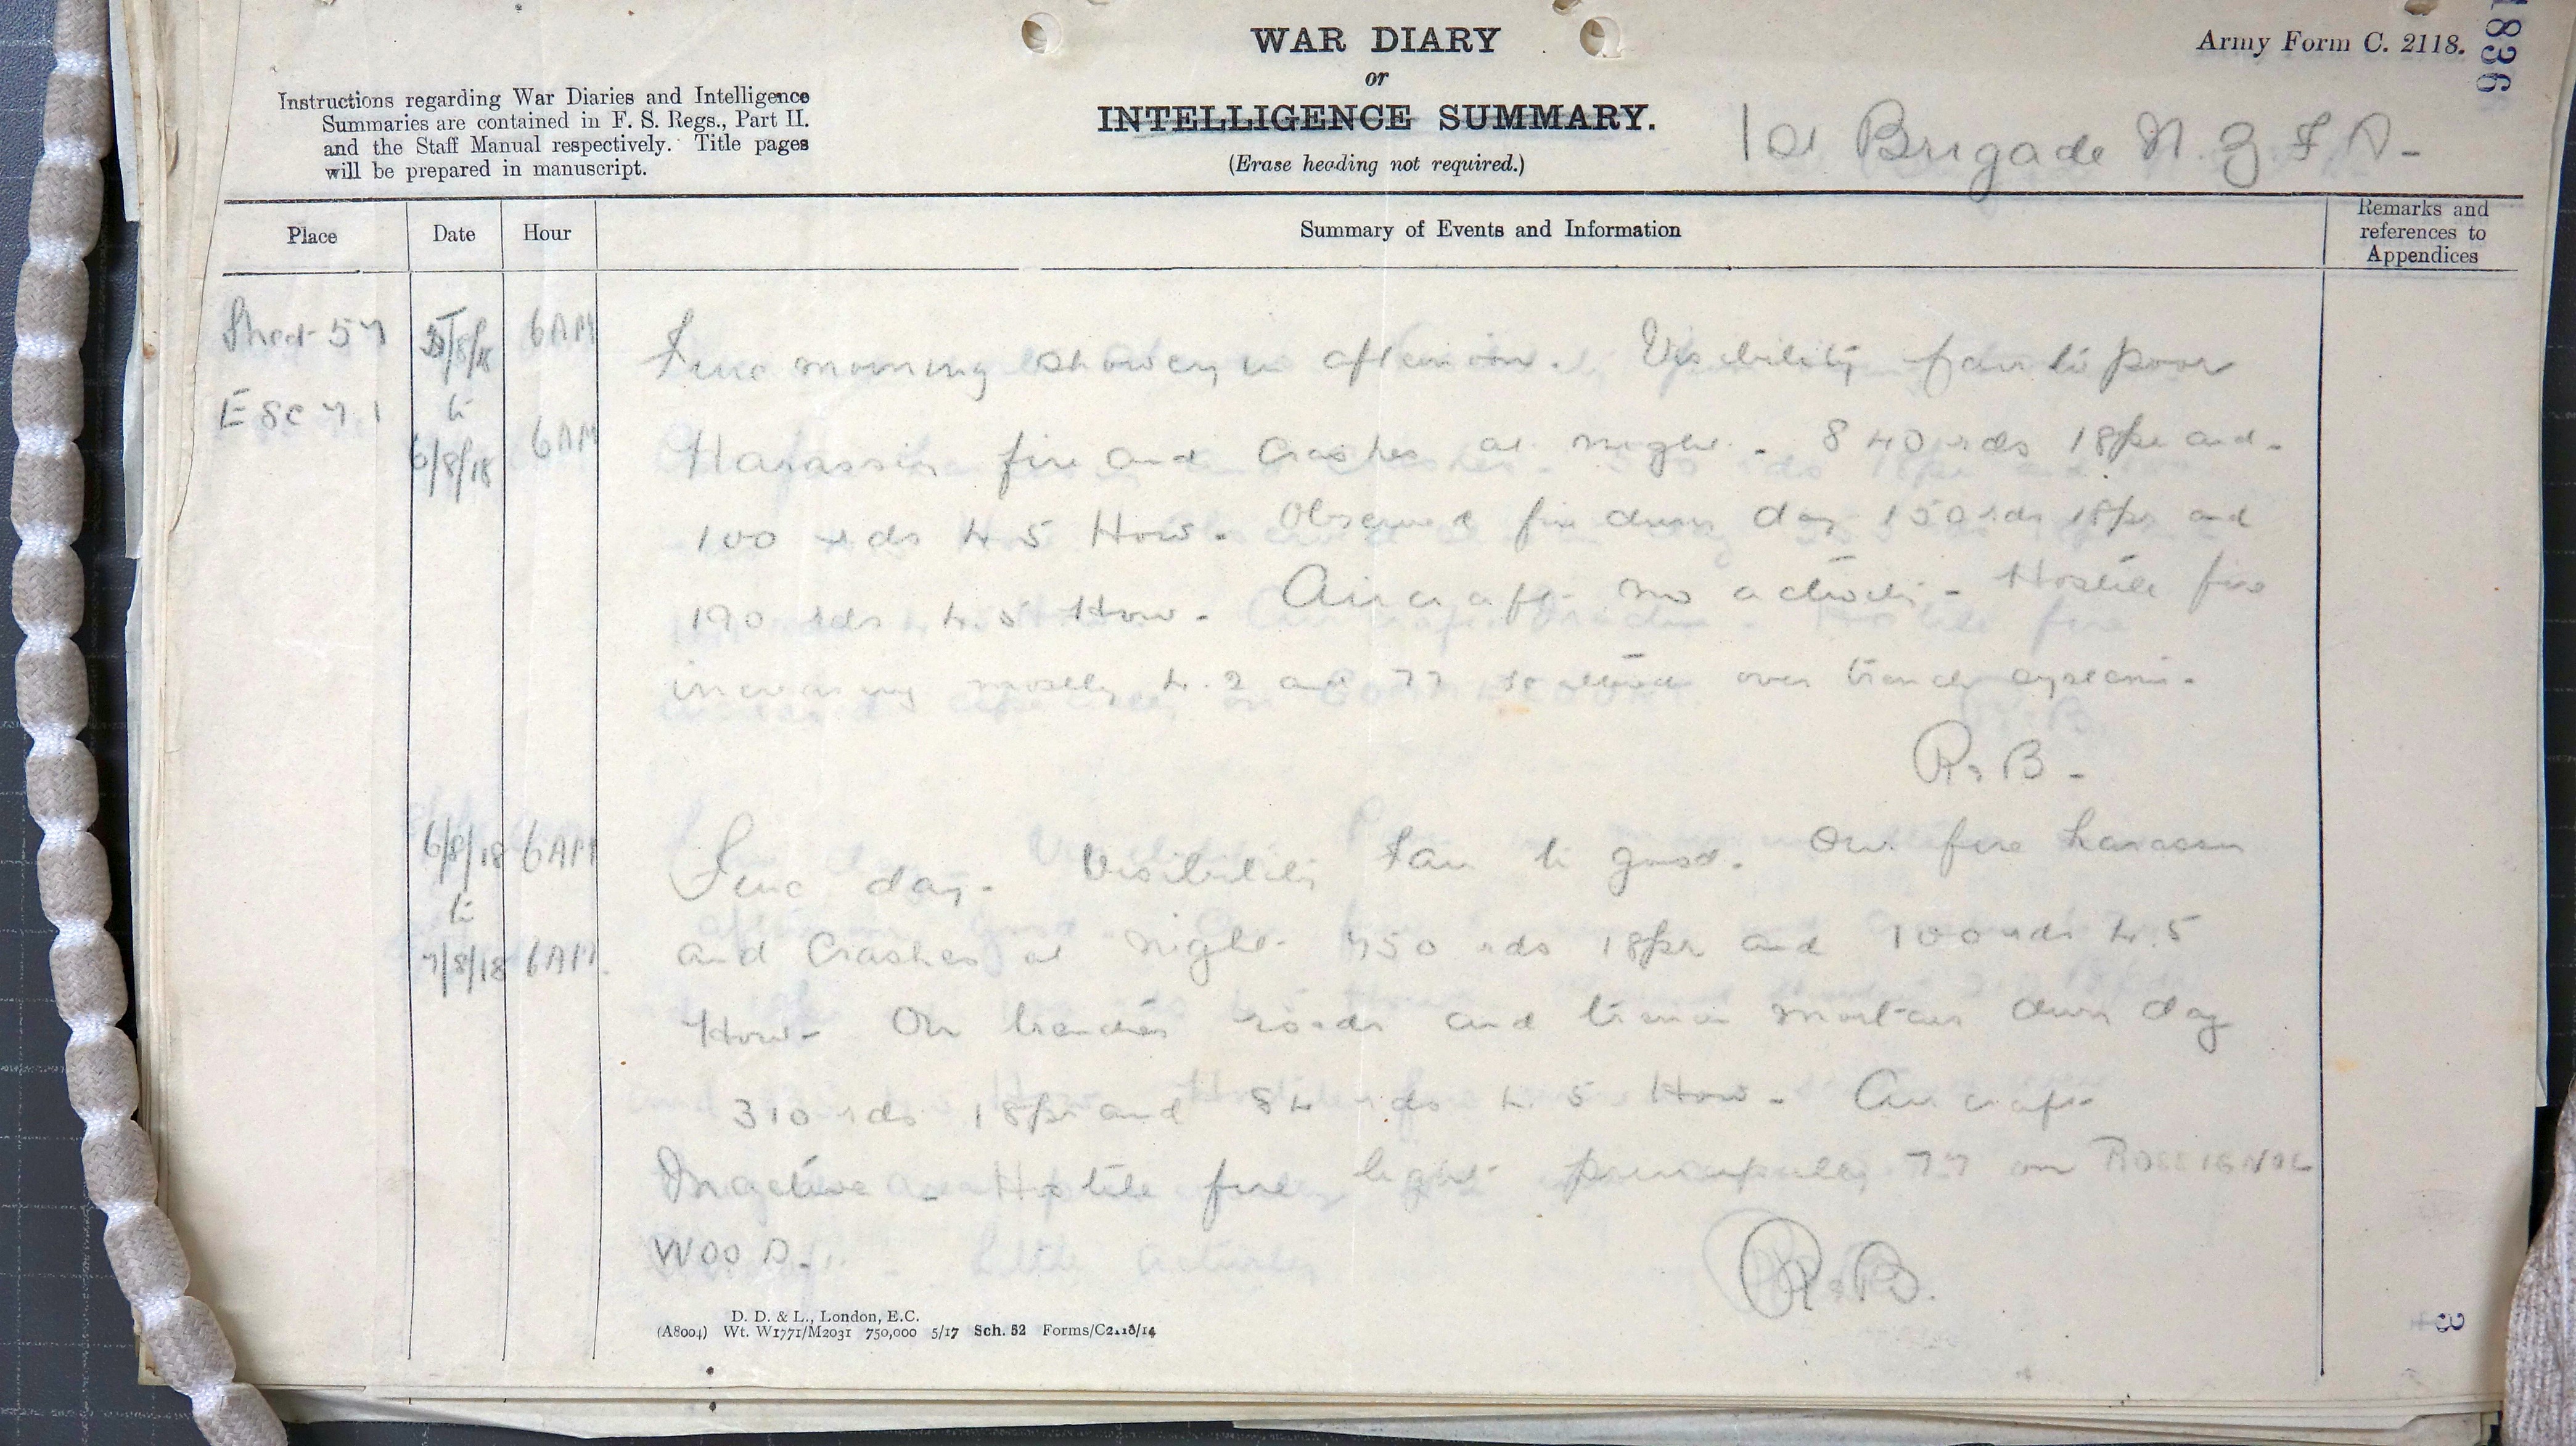 WAR DIARY
or
INTELLIGENCE SUMMARY.
(Erase heading not required.)
Army Form C. 2118.
1836
Instructions regarding War Diaries and Intelligence
Summaries are contained in F. S. Regs., Part II.
and the Staff Manual respectively. Title pages
will be prepared in manuscript.
1st Brigade N.Z.F.A.
Place Date Hour Summary of Events and Information Remarks and
references to
Appendices
Sheet 57 5/8/18 6AM Fine morning showery in afternoon. Visibility fair to poor
E8c 7.1 to
6/8/18 6AM Harassing fire and crashes at night. 840 rds 18pr and
100 rds 4.5 How. Observed fire during day 150 rds 18pr and
190 rds 4.5 How. Aircraft no activity. Hostile fire
increasing mostly 4.2 and 77 scattered over trench system.
R.B.
6/8/18 6AM Fine day. Visibility fair to good. Our fire harassing
to
7/8/18 6AM. and crashes at night 750 rds 18pr and 100 rds 4.5
How. On trenches roads and trench mortars during day
310 rds 18pr and 84 rds 4.5 How. Aircraft
Inactive. Hostile fire light principally 77 on ROSSIGNOL
WOOD.
R.B.
D. D. & L., London, E.C.
(A8004) Wt. W1771/M2031 750,000 5/17 Sch. 52 Forms/C2118/14